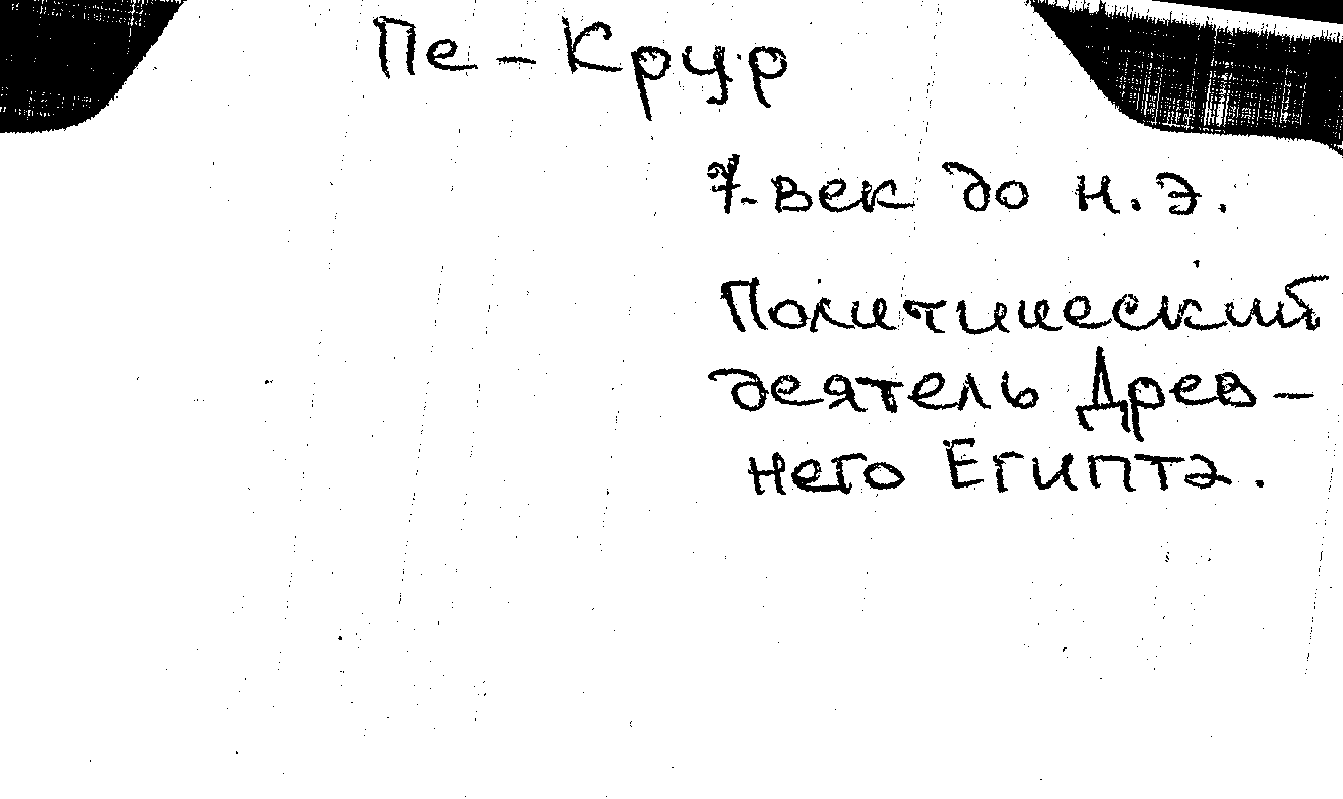 Пе-Крур
7-век до н.э.
Политический
деятель Древ-
него Египта.